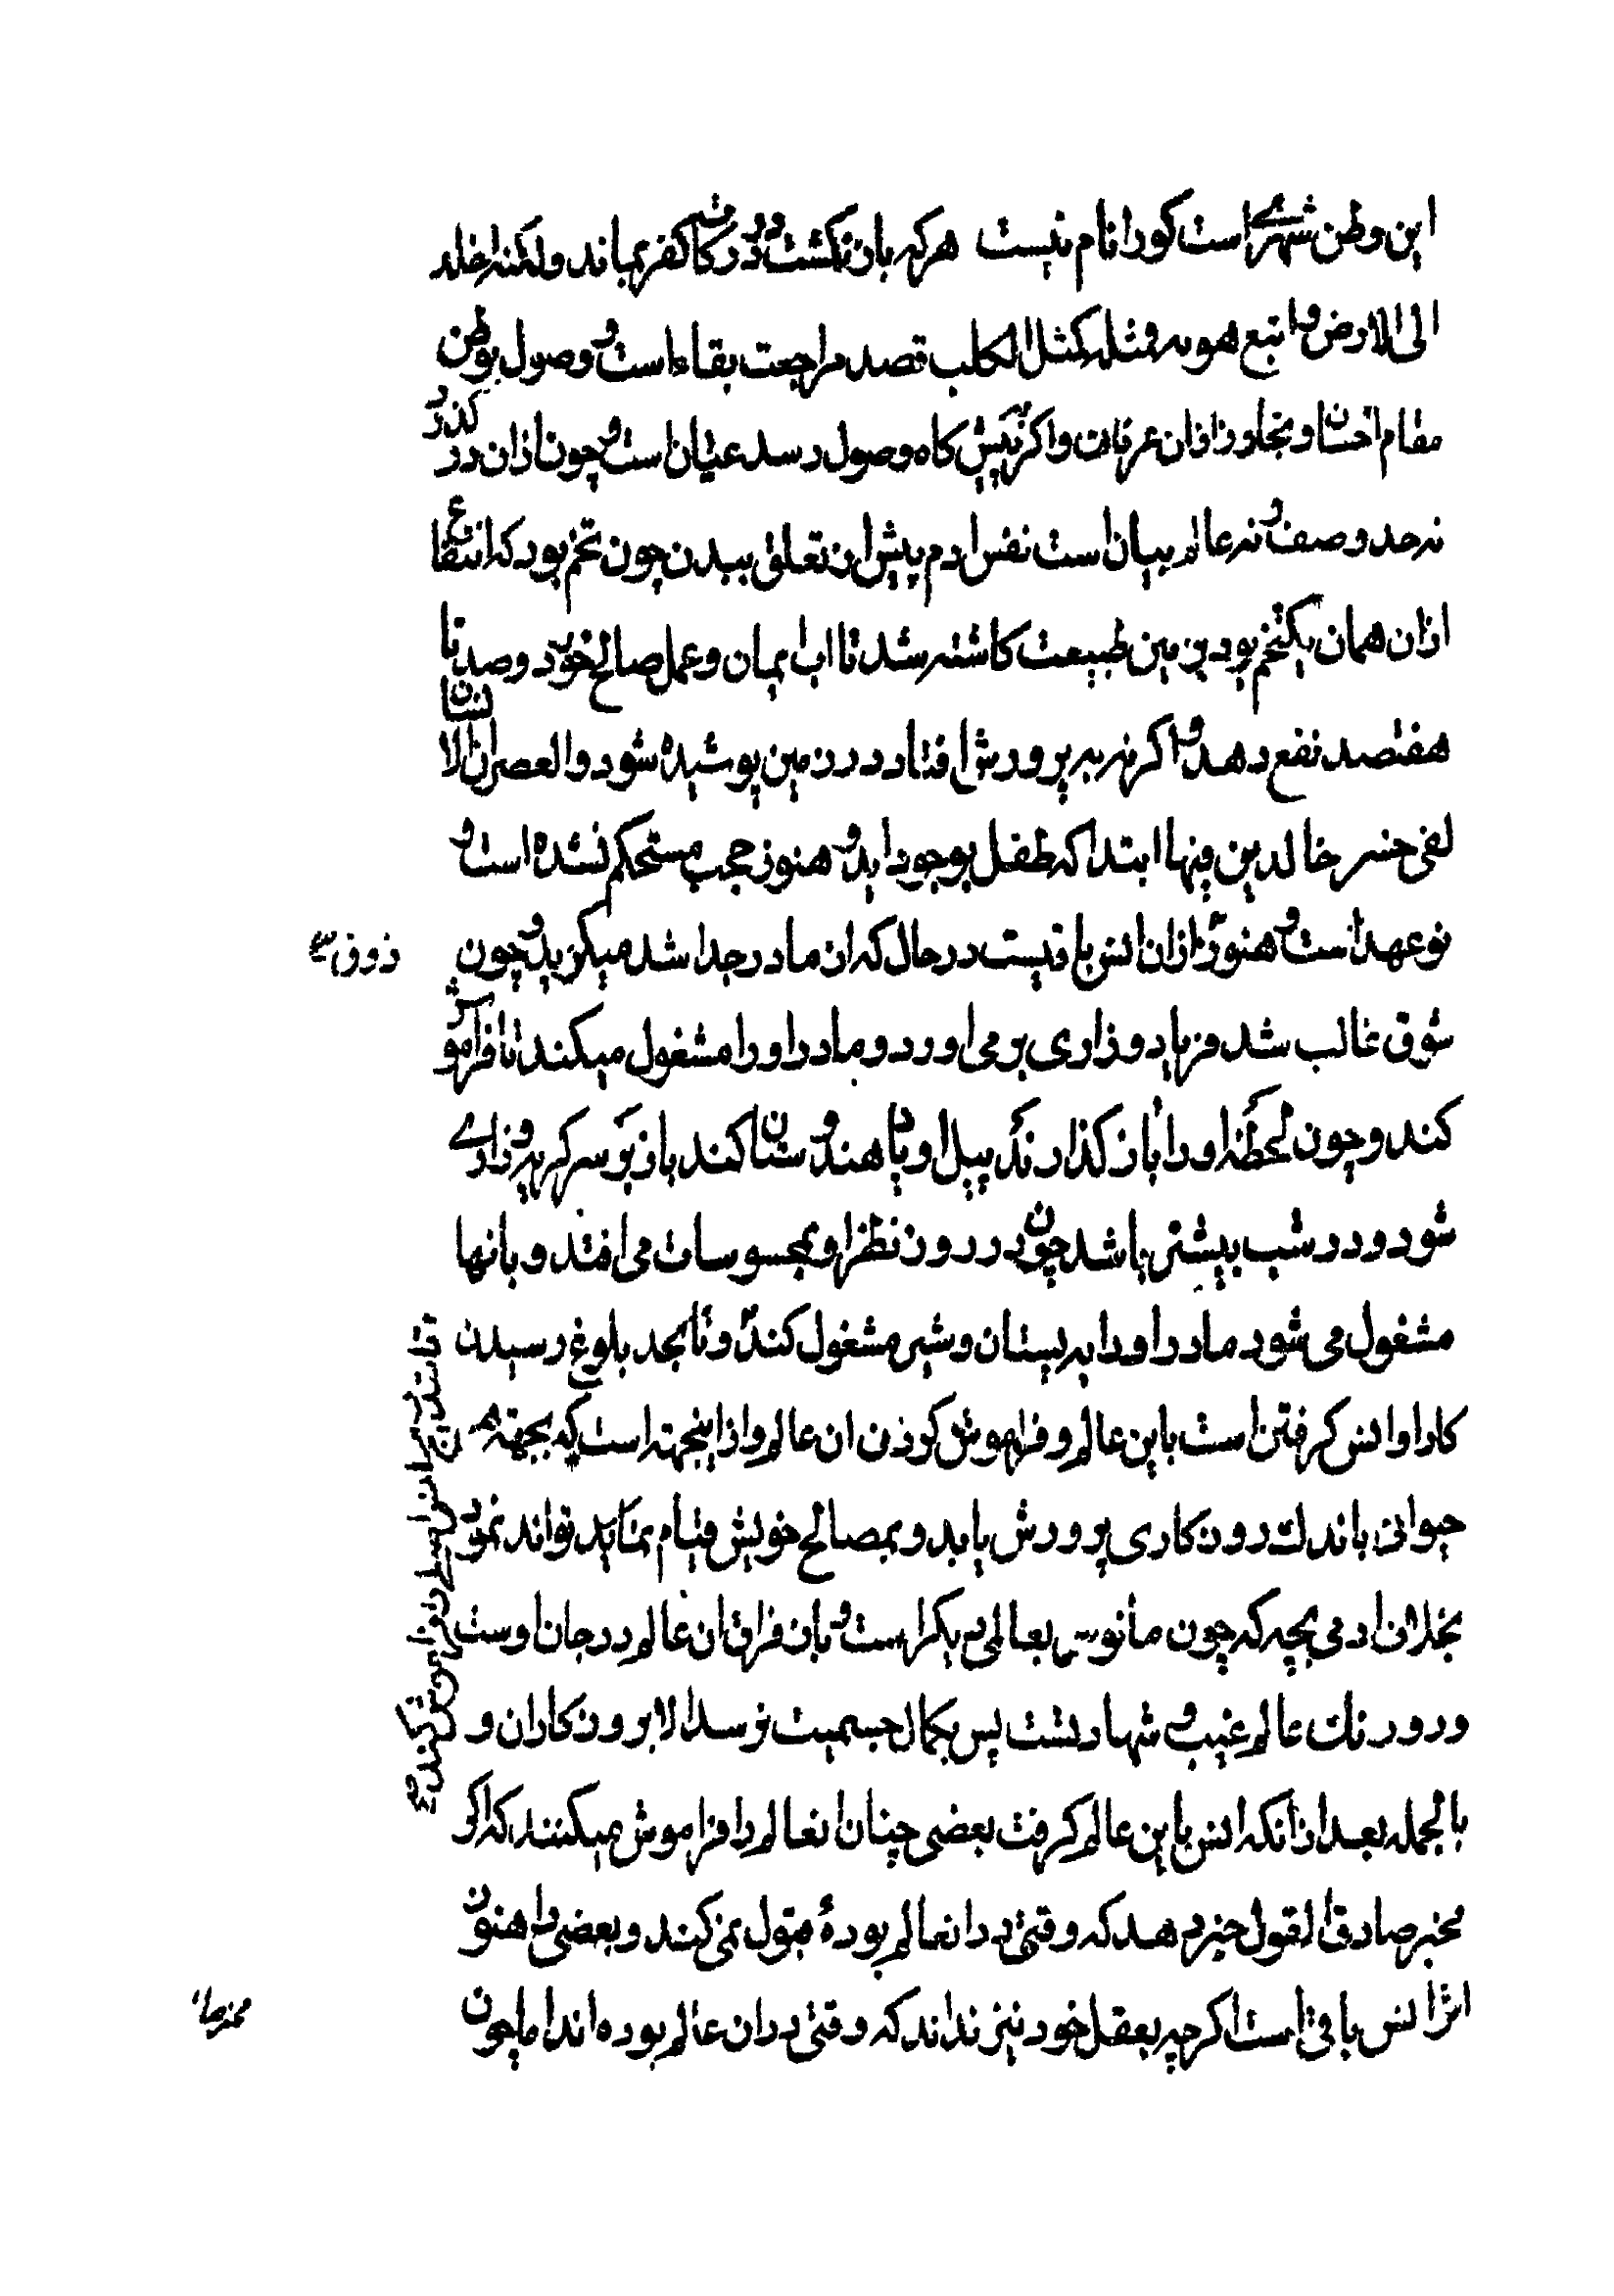 این وطن شهریست کورا نام نیست هرکه بان نکشت در درکات کفر بماند ولکنه اخلد
الی الارض واتبع هویه فمثله کمثل الکلب قصد مراجعت بقاء است و وصول بوطن
مقام احسان وتجاوز ازان عرفان واکر به پیش کاه وصول رسد عیان است وچون ازان در کذرد
نه حد وصف ونه عالم بیان است نفس ادم پیش از تعلق ببدن چون تخم بود که انتفاع
ازان همان یکتخم بود بزمین طبیعت کاشته شد تا اب ایمان وعمل صالح خورد وصد تا
هفتصد نفع دهد واکر نه به پرورش افتاد در زمین پوشیده شود والعصر ان الانسان
لفی خسر خالدین فیها ابتدا که طفل بوجود اید وهنوز حجب مستحکم نشده است و
نو عهد است وهنوز ازان انس باقیست در حال که از مادر جدا شد میکرید وچون
ذوق
شوق غالب شد فریاد وزاری بر می اورد ومادر اورا مشغول میکند تا فراموش
کند وچون لحظه اورا باز کذارند پیل او یاد هندوستان کند باز بر سر کریه وزاری
شود ودر شب بیشتر باشد چون در روز نظر او بمحسوسات می افتد وبانها
مشغول می شود مادر اورا به پستان وشیر مشغول کند وتا بحد بلوغ رسیدن
کار او انس کرفتن است باین عالم وفراموش کردن ان عالم وازاینجهة است که بجهة هر
حیوانی باندك روزکاری پرورش یابد وبمصالح خویش قیام نماید تواند نمود
بخلاف ادمی بچه که چون مانوس بعالم دیکر است وبار فراق ان عالم در جان اوست
ودو رنك عالم غیب وشهادتست پس بکمال جسمیت نرسد الا بروزکاران و
بالجمله بعد ازانکه انس باین عالم کرفت بعضی چنان انعالم را فراموش میکنند که اکر
مخبر صادق القول خبر دهد که وقتی در انعالم بوده قبول نمی کنند وبعضی را هنوز
اثر انس باقی است اکرچه بعقل خود نیز نداند که وقتی در ان عالم بوده اند اما چون